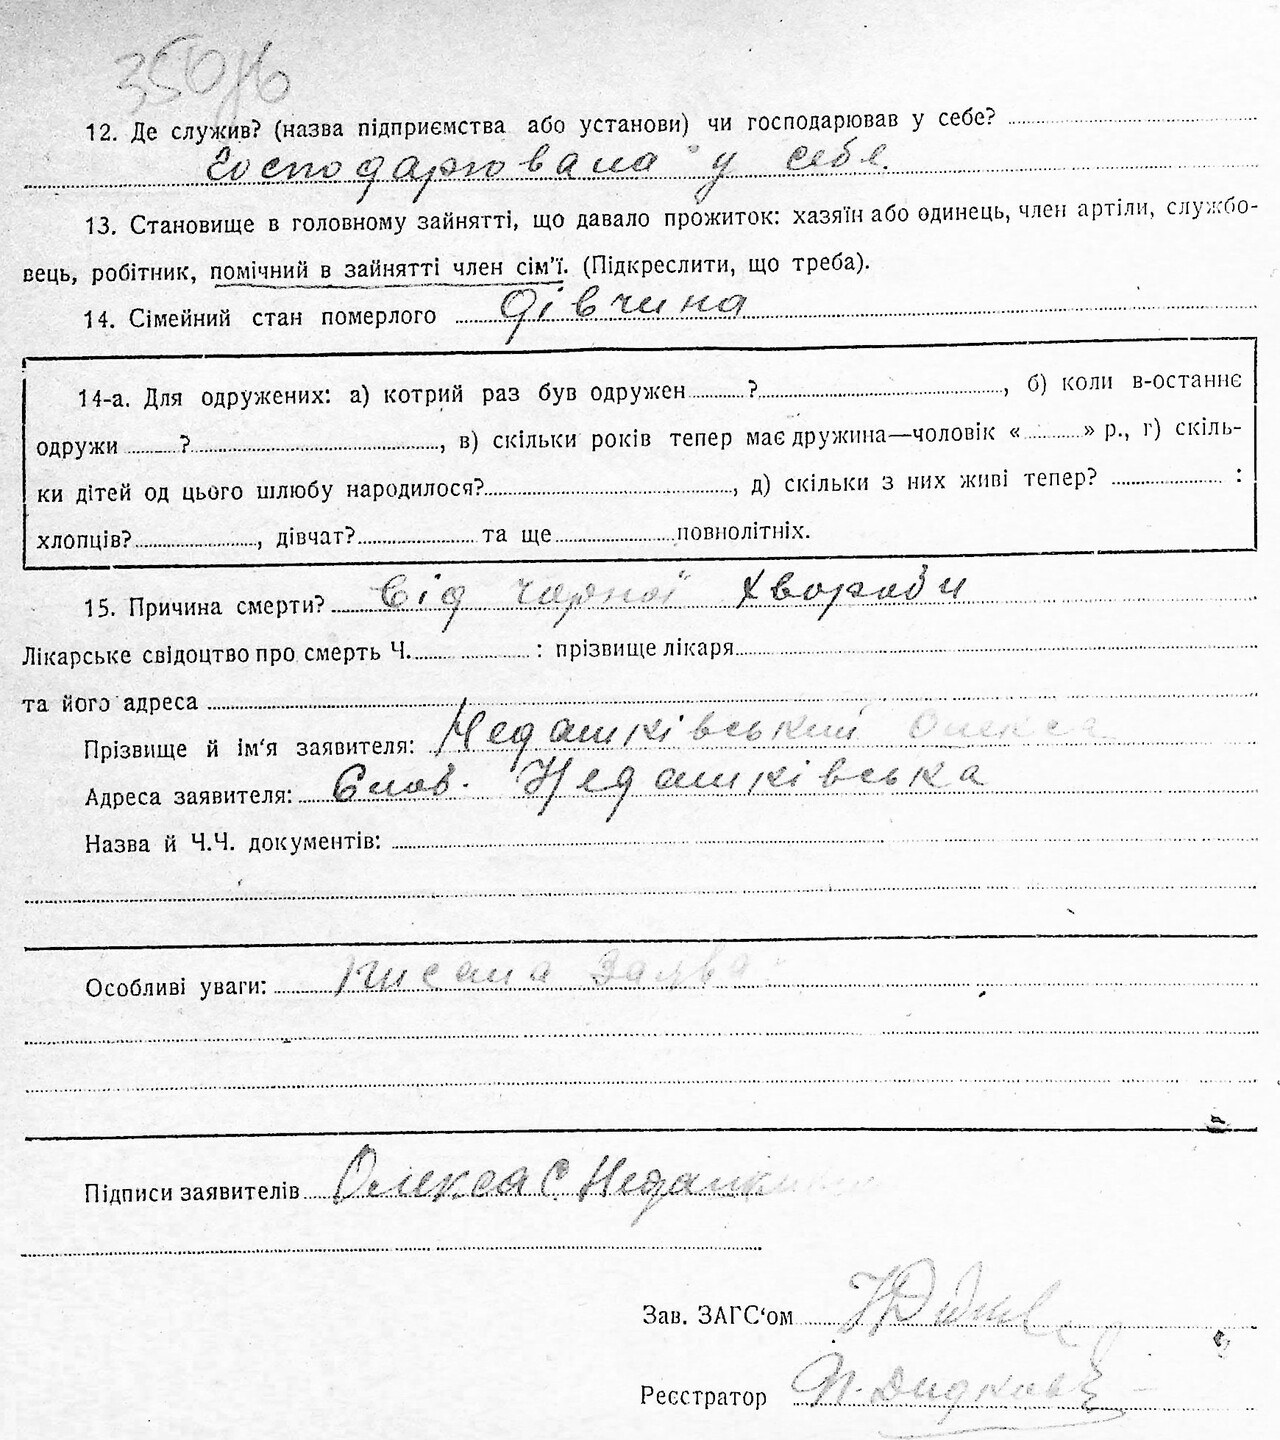 12. Де служив? (назва підприємства або установи) чи господарював у себе?
Господарювала у себе.
13. Становище в головному зайнятті, що давало прожиток: хазяїн або одинець, член артіли, службо-
вець, робітник, помічний в зайнятті член сім'ї. (Підкреслити, що треба).
14. Сімейний стан померлого дівчина
14-а. Для одружених: а) котрий раз був одружен ? , б) коли в-останнє
одружи ? , в) скільки років тепер має дружина—чоловік « » р., г) скіль-
ки дітей од цього шлюбу народилося? , д) скільки з них живі тепер? :
хлопців? , дівчат? та ще повнолітніх.
15. Причина смерти? Від чорної хвороби
Лікарське свідоцтво про смерть Ч. : прізвище лікаря
та його адреса
Прізвище й ім'я заявителя: Недашківський Олекса
Адреса заявителя: Слов. Недашківська
Назва й Ч.Ч. документів:
Особливі уваги: Писана заява
Підписи заявителів Олекса С
Зав. ЗАГС'ом
Реєстратор